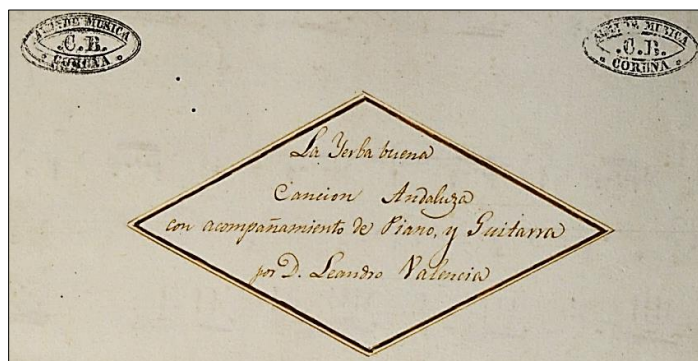 DE MUSICA
.C.B.
CORUÑA
DE MUSICA
.C.B.
CORUÑA
La Yerba buena
Cancion Andaluza
con acompañamiento de Piano, y Guitarra
por D. Leandro Valencia